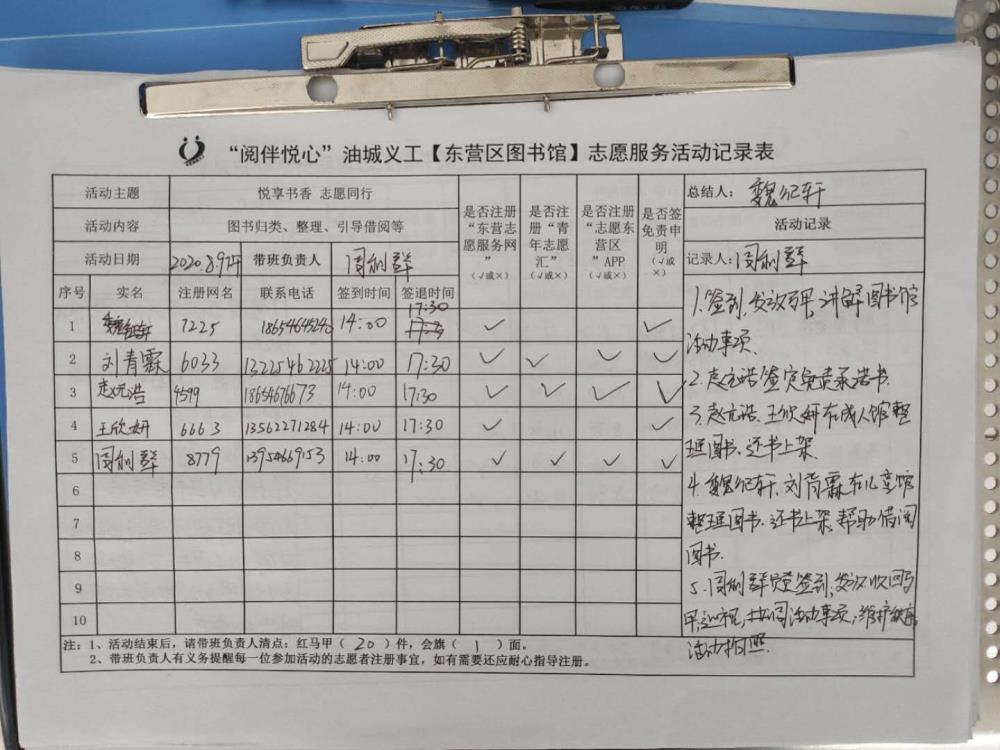 “阅伴悦心”油城义工【东营区图书馆】志愿服务活动记录表
活动主题 悦享书香 志愿同行
活动内容 图书归类、整理、引导借阅等
活动日期 2020.8.9下午 带班负责人 周利群
是否注册“东营志愿服务网”（√或×）
是否注册“青年志愿汇”（√或×）
是否注册“志愿东营区”APP（√或×）
是否签免责申明（√或×）
总结人：魏纪轩
活动记录
记录人：周利群
序号 实名 注册网名 联系电话 签到时间 签退时间
1 魏纪轩 7225 18654645240 14:00 17:30 √ √
2 刘青霖 6033 13225462225 14:00 17:30 √ √ √ √
3 赵元浩 4599 18654676673 14:00 17:30 √ √ √ √
4 王欣妍 6663 13562271284 14:00 17:30 √ √
5 周利群 8779 13954669153 14:00 17:30 √ √ √ √
6
7
8
9
10
1.签到，发放马甲，讲解图书馆
活动事项.
2.赵元浩签定免责承诺书.
3.赵元浩、王欣妍在成人馆整
理图书、还书上架.
4.魏纪轩、刘青霖在儿童馆
整理图书、还书上架，帮助借阅
图书.
5.周利群负责签到，发放收回马
甲，巡视，活动事项，维护秩序
活动拍照.
注：1、活动结束后，请带班负责人清点：红马甲（20）件，会旗（1）面。
2、带班负责人有义务提醒每一位参加活动的志愿者注册事宜，如有需要还应耐心指导注册。